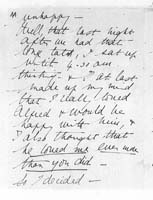 unhappy —
Well, that last night
after we had that
long talk, I sat up
until 4.30 am
thinking — & I at last
made up my mind
that I really loved
Alfred & would be
happy with him, &
I also thought that
he loved me even more
than you did —
So I decided —